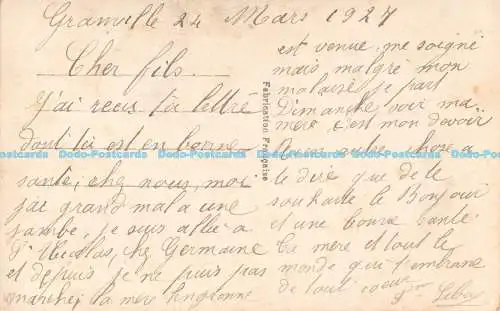 Granville 24 Mars 1927
Cher fils
J'ai recus ta lettre
dont tu est en bonne
santé, chez nous, moi
jai grand mal a une
jambe, je suis allé a
St Nicolas, chez Germaine
et depuis je ne puis pas
marcher, la mère
est venue me soigné
mais malgré mon
malaise je part
Dimanche soir ma
mère c'est mon devoir
autre chose a
te dire que de te
souhaité le Bonjour
et une bonne santé
ta mere et tout le
monde qui t'embrasse
de tout coeur
Fabrication Française
Dodo-Postcards Dodo-Postcards Dodo-Postcards Dodo-Postcards Dodo-Postcards Dodo-Postcards Dodo-Postcards